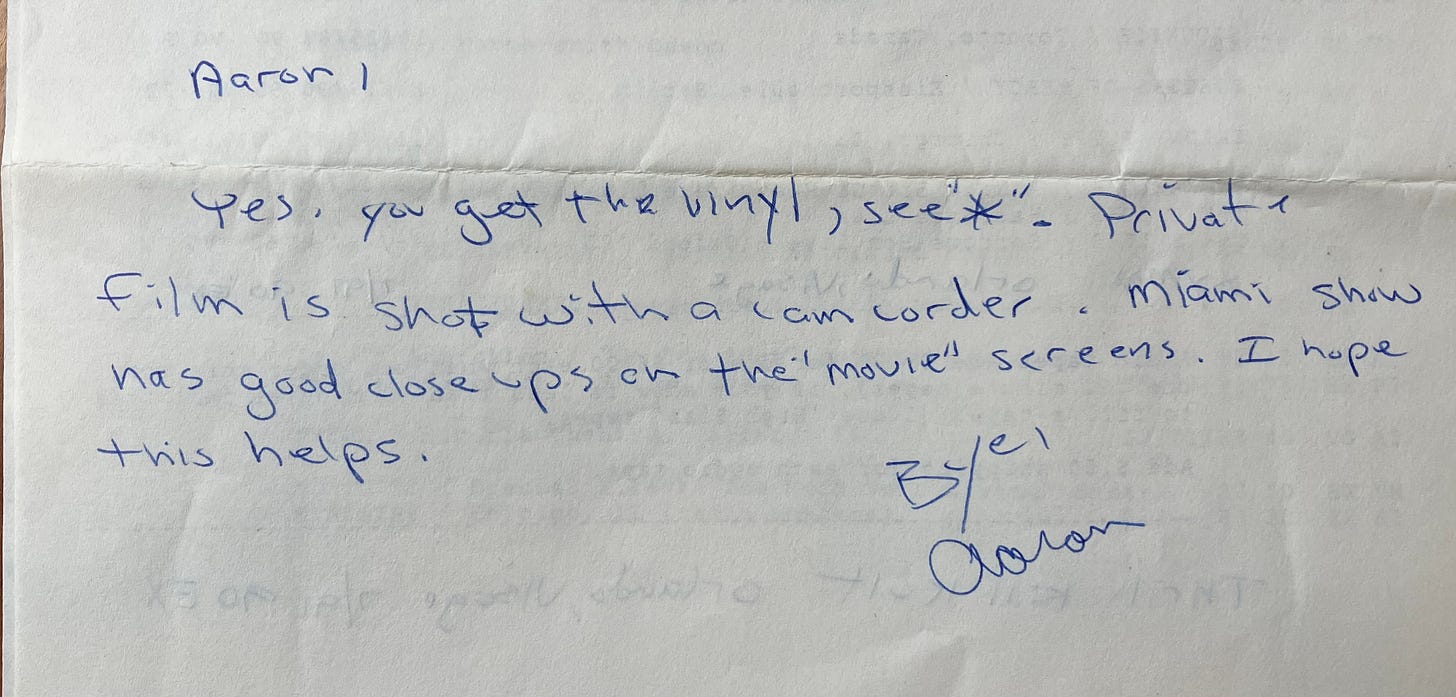 Aaron,
Yes, you get the vinyl, see "*". Private
film is shot with a camcorder. Miami show
has good close ups on the "movie" screens. I hope
this helps.
Bye,
Aaron